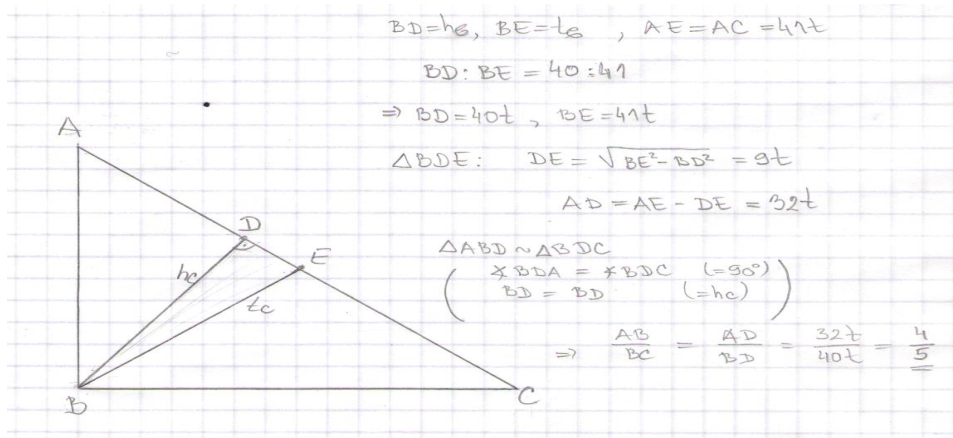 BD=h₆, BE=t₆ , AE=AC=41t
BD:BE = 40:41
⇒ BD=40t, BE=41t
△BDE: DE = √BE²-BD² = 9t
AD = AE - DE = 32t
△ABD ~ △BDC
( ∡BDA = ∡BDC (=90°)
BD = BD (=hc) )
⇒ AB/BC = AD/BD = 32t/40t = 4/5
A
D
E
hc
tc
B
C